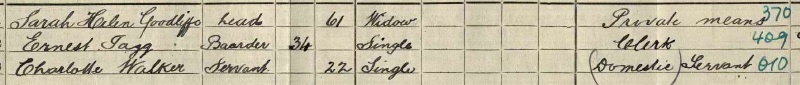 Sarah Helen Goodliffe head 61 Widow Private means 370
Ernest Tagg Boarder 34 Single Clerk 409
Charlotte Walker Servant 22 Single (Domestic) Servant 010